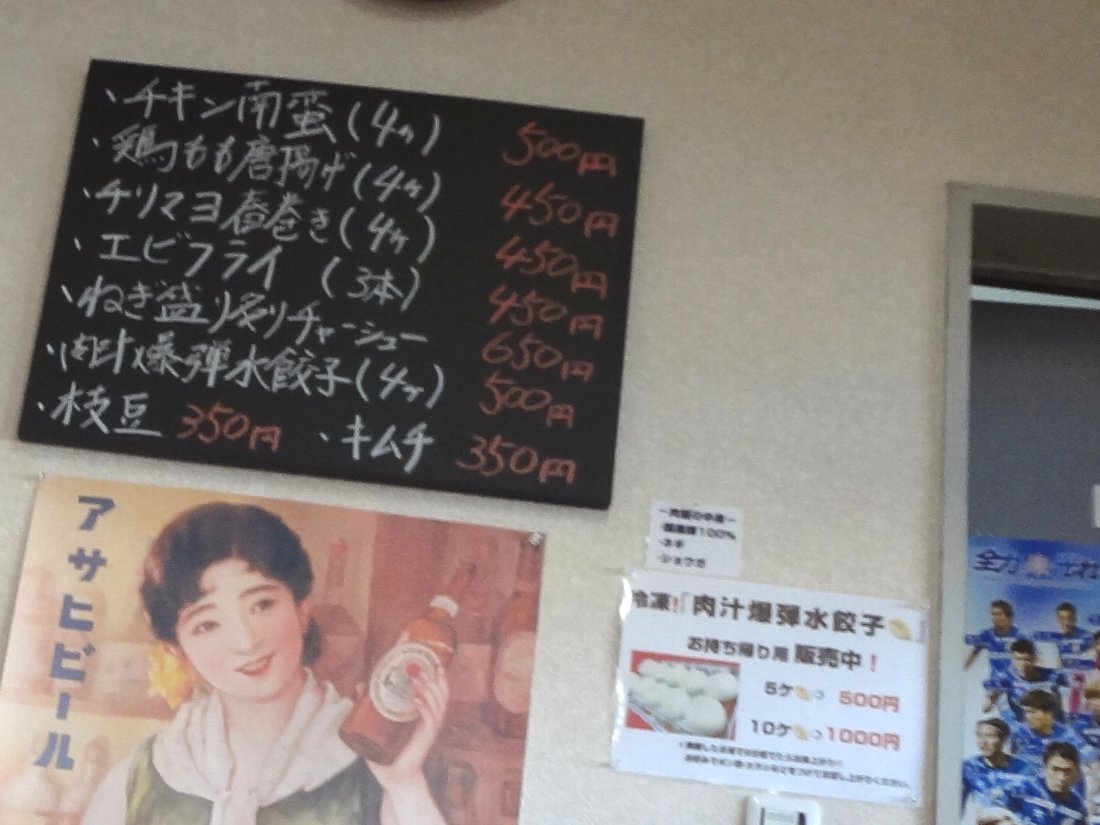 ・チキン南蛮(4ヶ) 500円
・鶏もも唐揚げ(4ヶ) 450円
・チリマヨ春巻き(4ヶ) 450円
・エビフライ (3本) 450円
・ねぎ盛り炙りチャーシュー 650円
・肉汁爆弾水餃子(4ヶ) 500円
・枝豆 350円 ・キムチ 350円
アサヒビール
100%
・ネギ
・ショウガ
冷凍!「肉汁爆弾水餃子
お持ち帰り用 販売中!
5ケ 500円
10ケ 1000円
全力